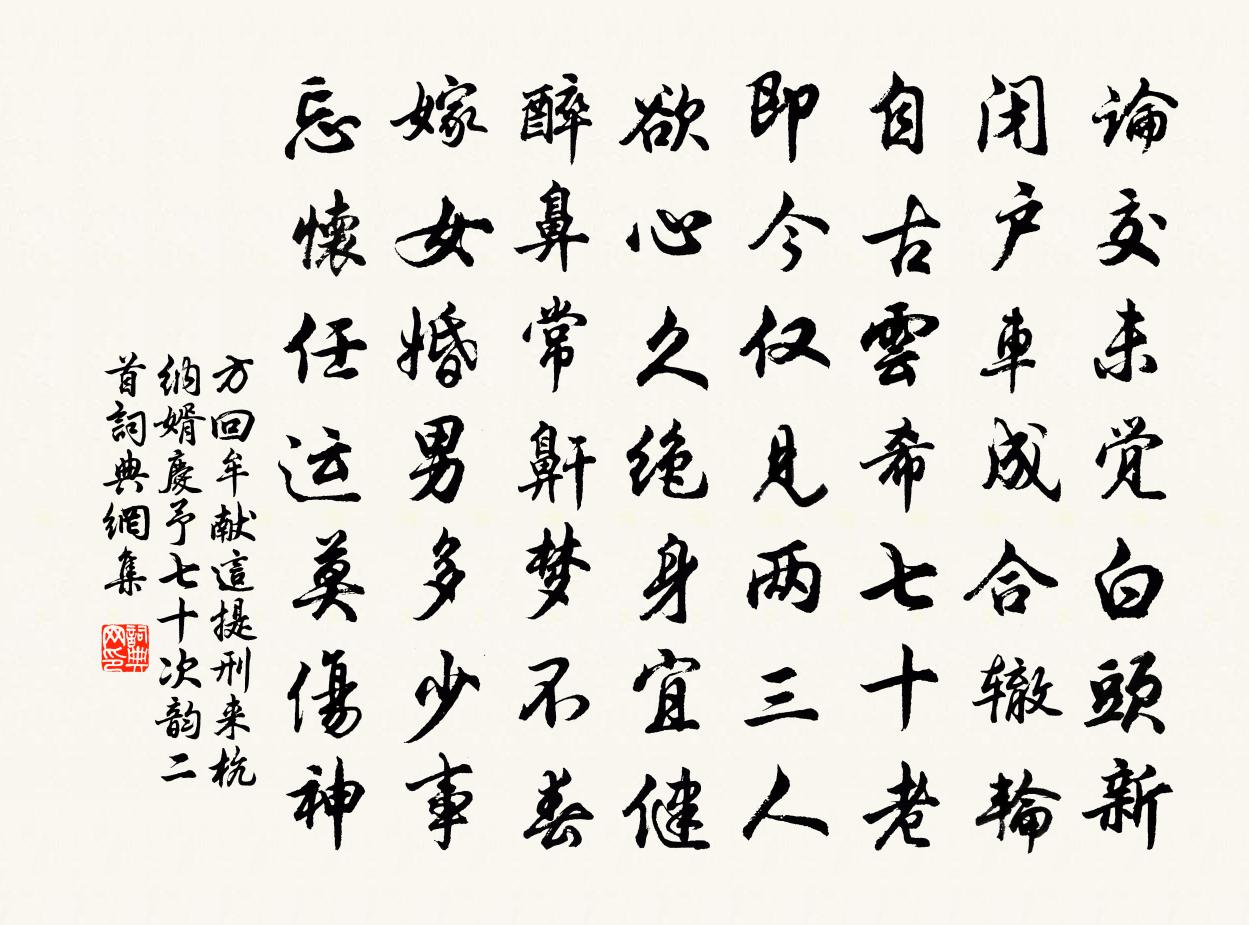 論交未觉白頭新
闭户車成合辙輪
自古雲希七十老
即今仅見两三人
欲心久绝身宜健
醉鼻常鼾梦不春
嫁女婚男多少事
忘懷任运莫傷神
方回牟献這提刑来杭
纳婿慶予七十次韵二
首詞典網集
詞典网印